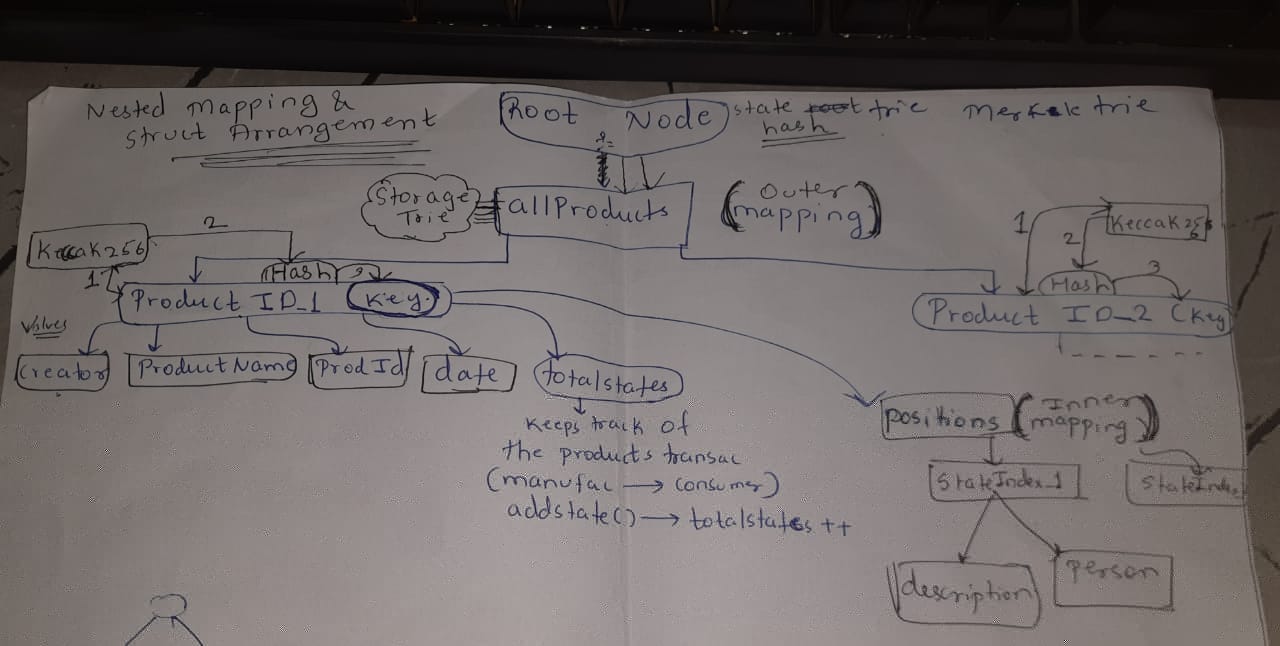 Nested mapping &
Struct Arrangement
Root Node
state root trie
hash
merkle trie
Storage
Trie
allProducts
(Outer
mapping)
2
Keccak256
1
Hash
3
Product ID_1
Key
1
2
Keccak256
Hash
3
Product ID_2 (Key
Values
Creator
ProductName
ProdId
date
totalstates
Keeps track of
the products transac
(manufac → consumer)
addstate() → totalstates ++
positions
(Inner
mapping)
StateIndex_1
StateIndex
description
person